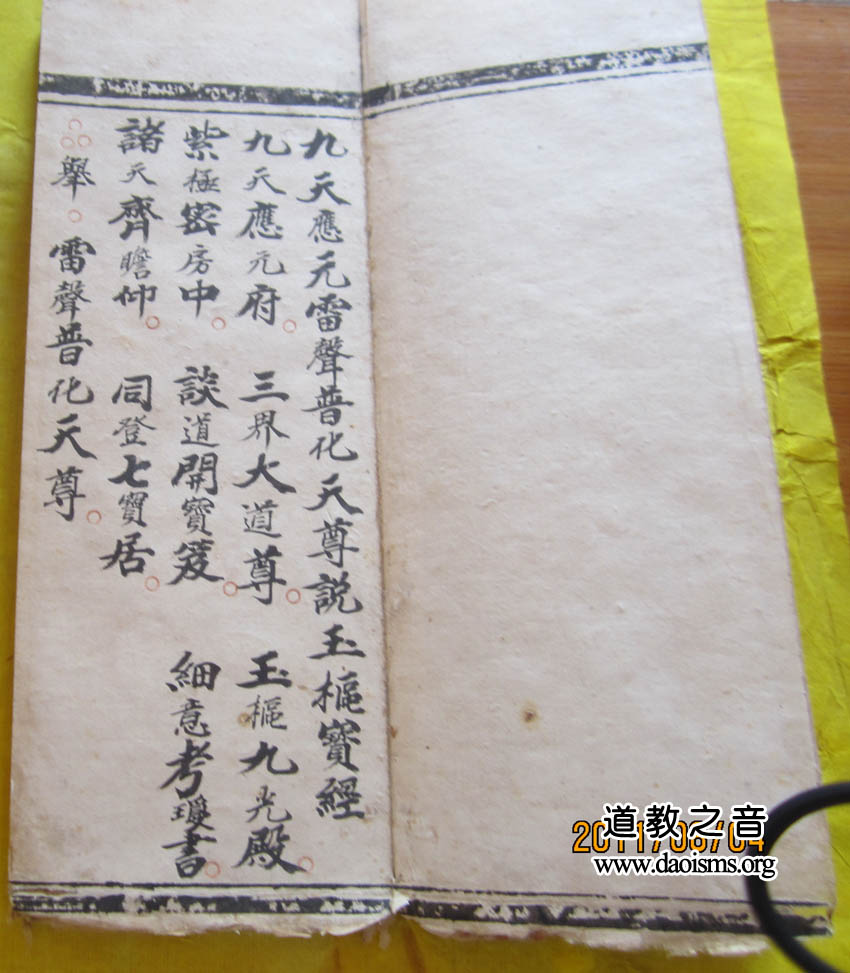 九天應元雷聲普化天尊説玉樞寶經
九天應元府。 三界大道尊。 玉樞九光殿。
紫極密房中。 談道開寶笈。 細意考瓊書。
諸天齊瞻仰。 同登七寶居。
舉。雷聲普化天尊。
2011/08/04
道教之音
www.daoisms.org